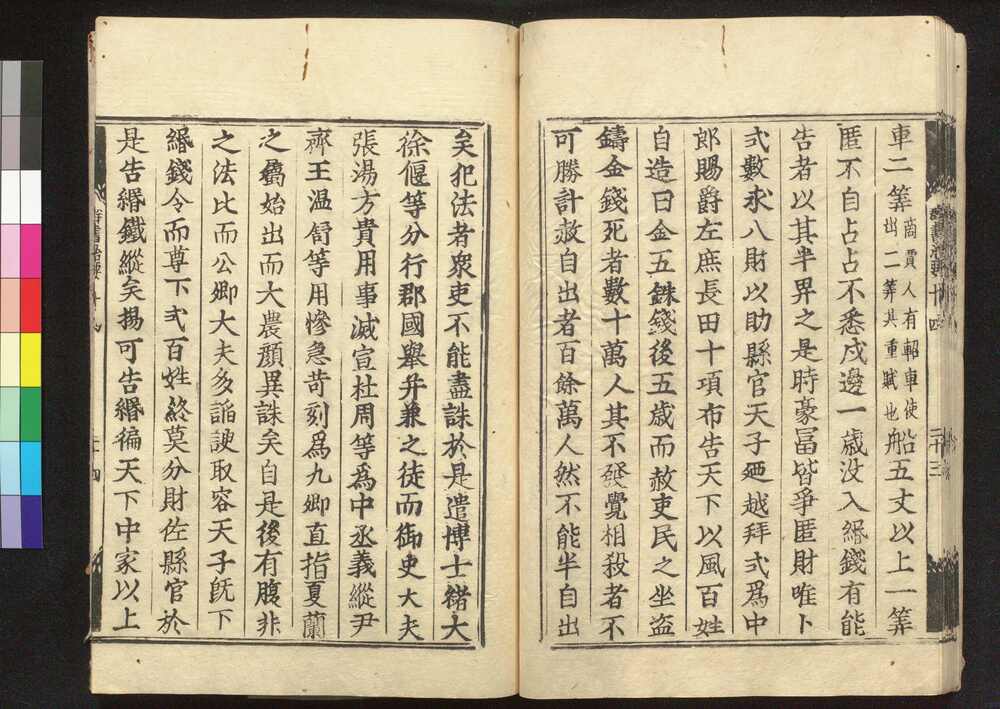 車二筭商賈人有軺車使出二筭其重賦也船五丈以上一筭
匿不自占占不悉戍邊一歲沒入緡錢有能
告者以其半畀之是時豪冨皆爭匿財唯卜
式數求入財以助縣官天子廼越拜式爲中
郎賜爵左庶長田十項布告天下以風百姓
自造曰金五銖錢後五歲而赦吏民之坐盗
鑄金錢死者數十萬人其不發覺相殺者不
可勝計赦自出者百餘萬人然不能半自出
矣犯法者衆吏不能盡誅於是遣博士褚大
徐偃等分行郡國舉并兼之徒而御史大夫
張湯方貴用事減宣杜周等爲中丞義縱尹
齊王温舒等用慘急苛刻爲九卿直指夏蘭
之屬始出而大農顏異誅矣自是後有腹非
之法比而公卿大夫多謟諛取容天子旣下
緡錢令而尊卜式百姓終莫分財佐縣官於
是告緡鐵縱矣揚可告緡徧天下中家以上
群書治要十四
二十三